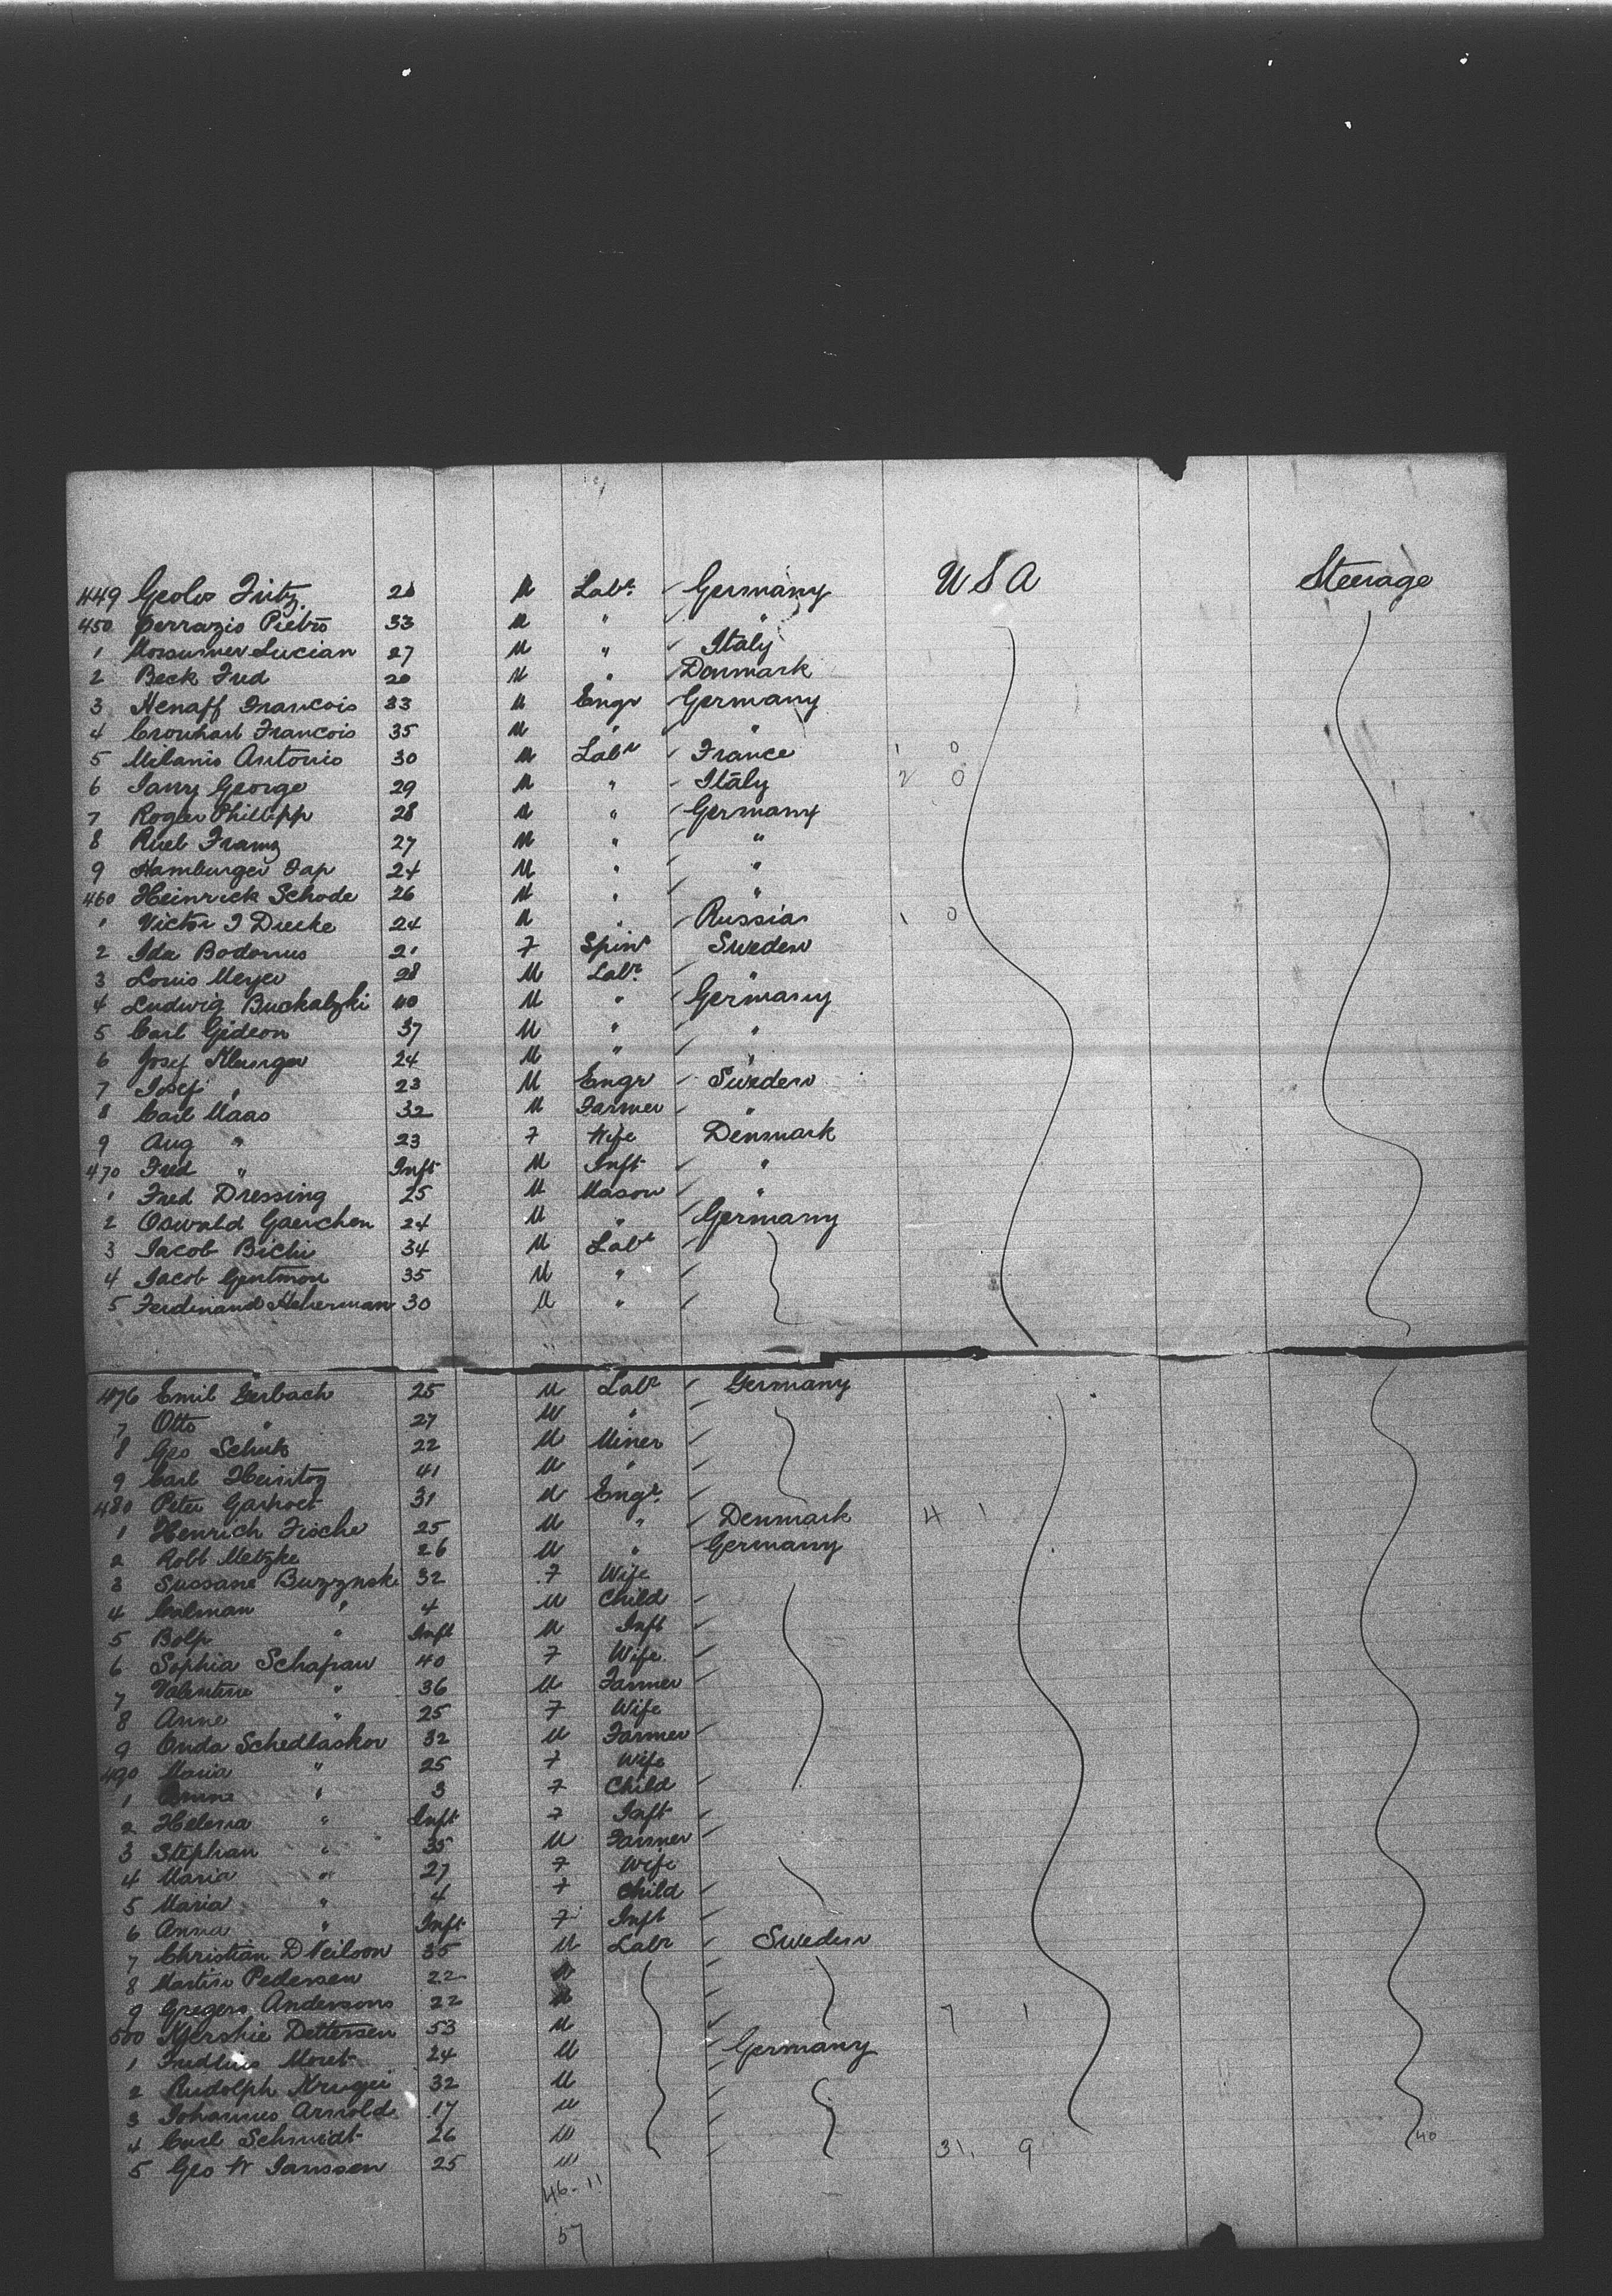 449 Geolos Fritz 26 M Labr. Germany USA Steerage
450 Perrazio Pietro 33 M " "
1 Lucian 27 M " Italy
2 Beck Fred 20 M " Denmark
3 Henaff Francois 33 M Engr Germany
4 Francois 35 M " "
5 Milanis Antonio 30 M Labr France 1 0
6 George 29 M " Italy 2 0
7 Roger Phillipp 28 M " Germany
8 Ruel Franz 27 M " "
9 Hamburger Jap 24 M " "
460 Heinrick Schode 26 M " "
1 Victor J Diecke 24 M " Russia 1 0
2 Ida Bodonus 21 F Spinr Sweden
3 Louis Meyer 28 M Labr. "
4 Ludwig Buckalzki 40 M " Germany
5 Carl Gideon 37 M " "
6 Josef Klunger 24 M " "
7 Josef " 23 M Engr Sweden
8 Carl Maas 32 M Farmer "
9 Aug " 23 F Wife Denmark
470 Fred " Inft M Inft "
1 Fred Dressing 25 M Mason "
2 Oswald Gaerchen 24 M " Germany
3 Jacob Bichi 34 M Labr
4 Jacob Gentmon 35 M "
5 Ferdinand Heherman 30 M "
476 Emil Gerbach 25 M Labr Germany
7 Otto " 27 M "
8 Geo Schuk 22 M Miner
9 Carl 41 M "
480 Peter 31 M Engr.
1 Henrich Fische 25 M " Denmark 4 1
2 Robt Metzke 26 M " Germany
3 Sussane Buzznski 32 F Wife
4 Calman " 4 M Child
5 Bolp " Inft M Inft
6 Sophia Schapan 40 F Wife
7 Valentine " 36 M Farmer
8 Anne " 25 F Wife
9 Onda Schedlaskov 32 M Farmer
490 Maria " 25 F Wife
1 " 3 F Child
2 Helena " Inft F Inft
3 Stephan " 35 M Farmer
4 Maria " 27 F Wife
5 Maria " 4 F Child
6 Anna " Inft F Inft
7 Christian D Neilson 35 M Labr Sweden
8 Martin Pedersen 22 M
9 Gregers Andersons 22 M 7 1
500 Dettersen 53 M
1 Moret 24 M Germany
2 Rudolph Kruger 32 M
3 Johannes Arnold 17 M
4 Carl Schmidt 26 M 31 9 40
5 Geo W Janssen 25 M
46-11
57